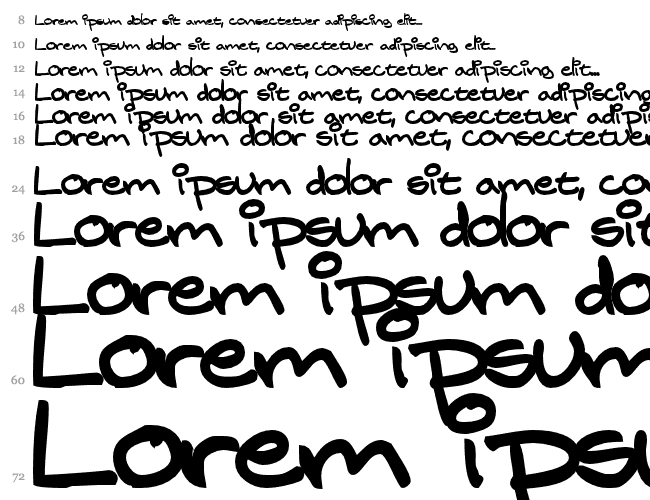 8 Lorem ipsum dolor sit amet, consectetuer adipiscing elit...
10 Lorem ipsum dolor sit amet, consectetuer adipiscing elit...
12 Lorem ipsum dolor sit amet, consectetuer adipiscing elit...
14 Lorem ipsum dolor sit amet, consectetuer adipiscing
16 Lorem ipsum dolor sit amet, consectetuer adipis
18 Lorem ipsum dolor sit amet, consectetuer
24 Lorem ipsum dolor sit amet, co
36 Lorem ipsum dolor sit
48 Lorem ipsum do
60 Lorem ipsum
72 Lorem ipsu